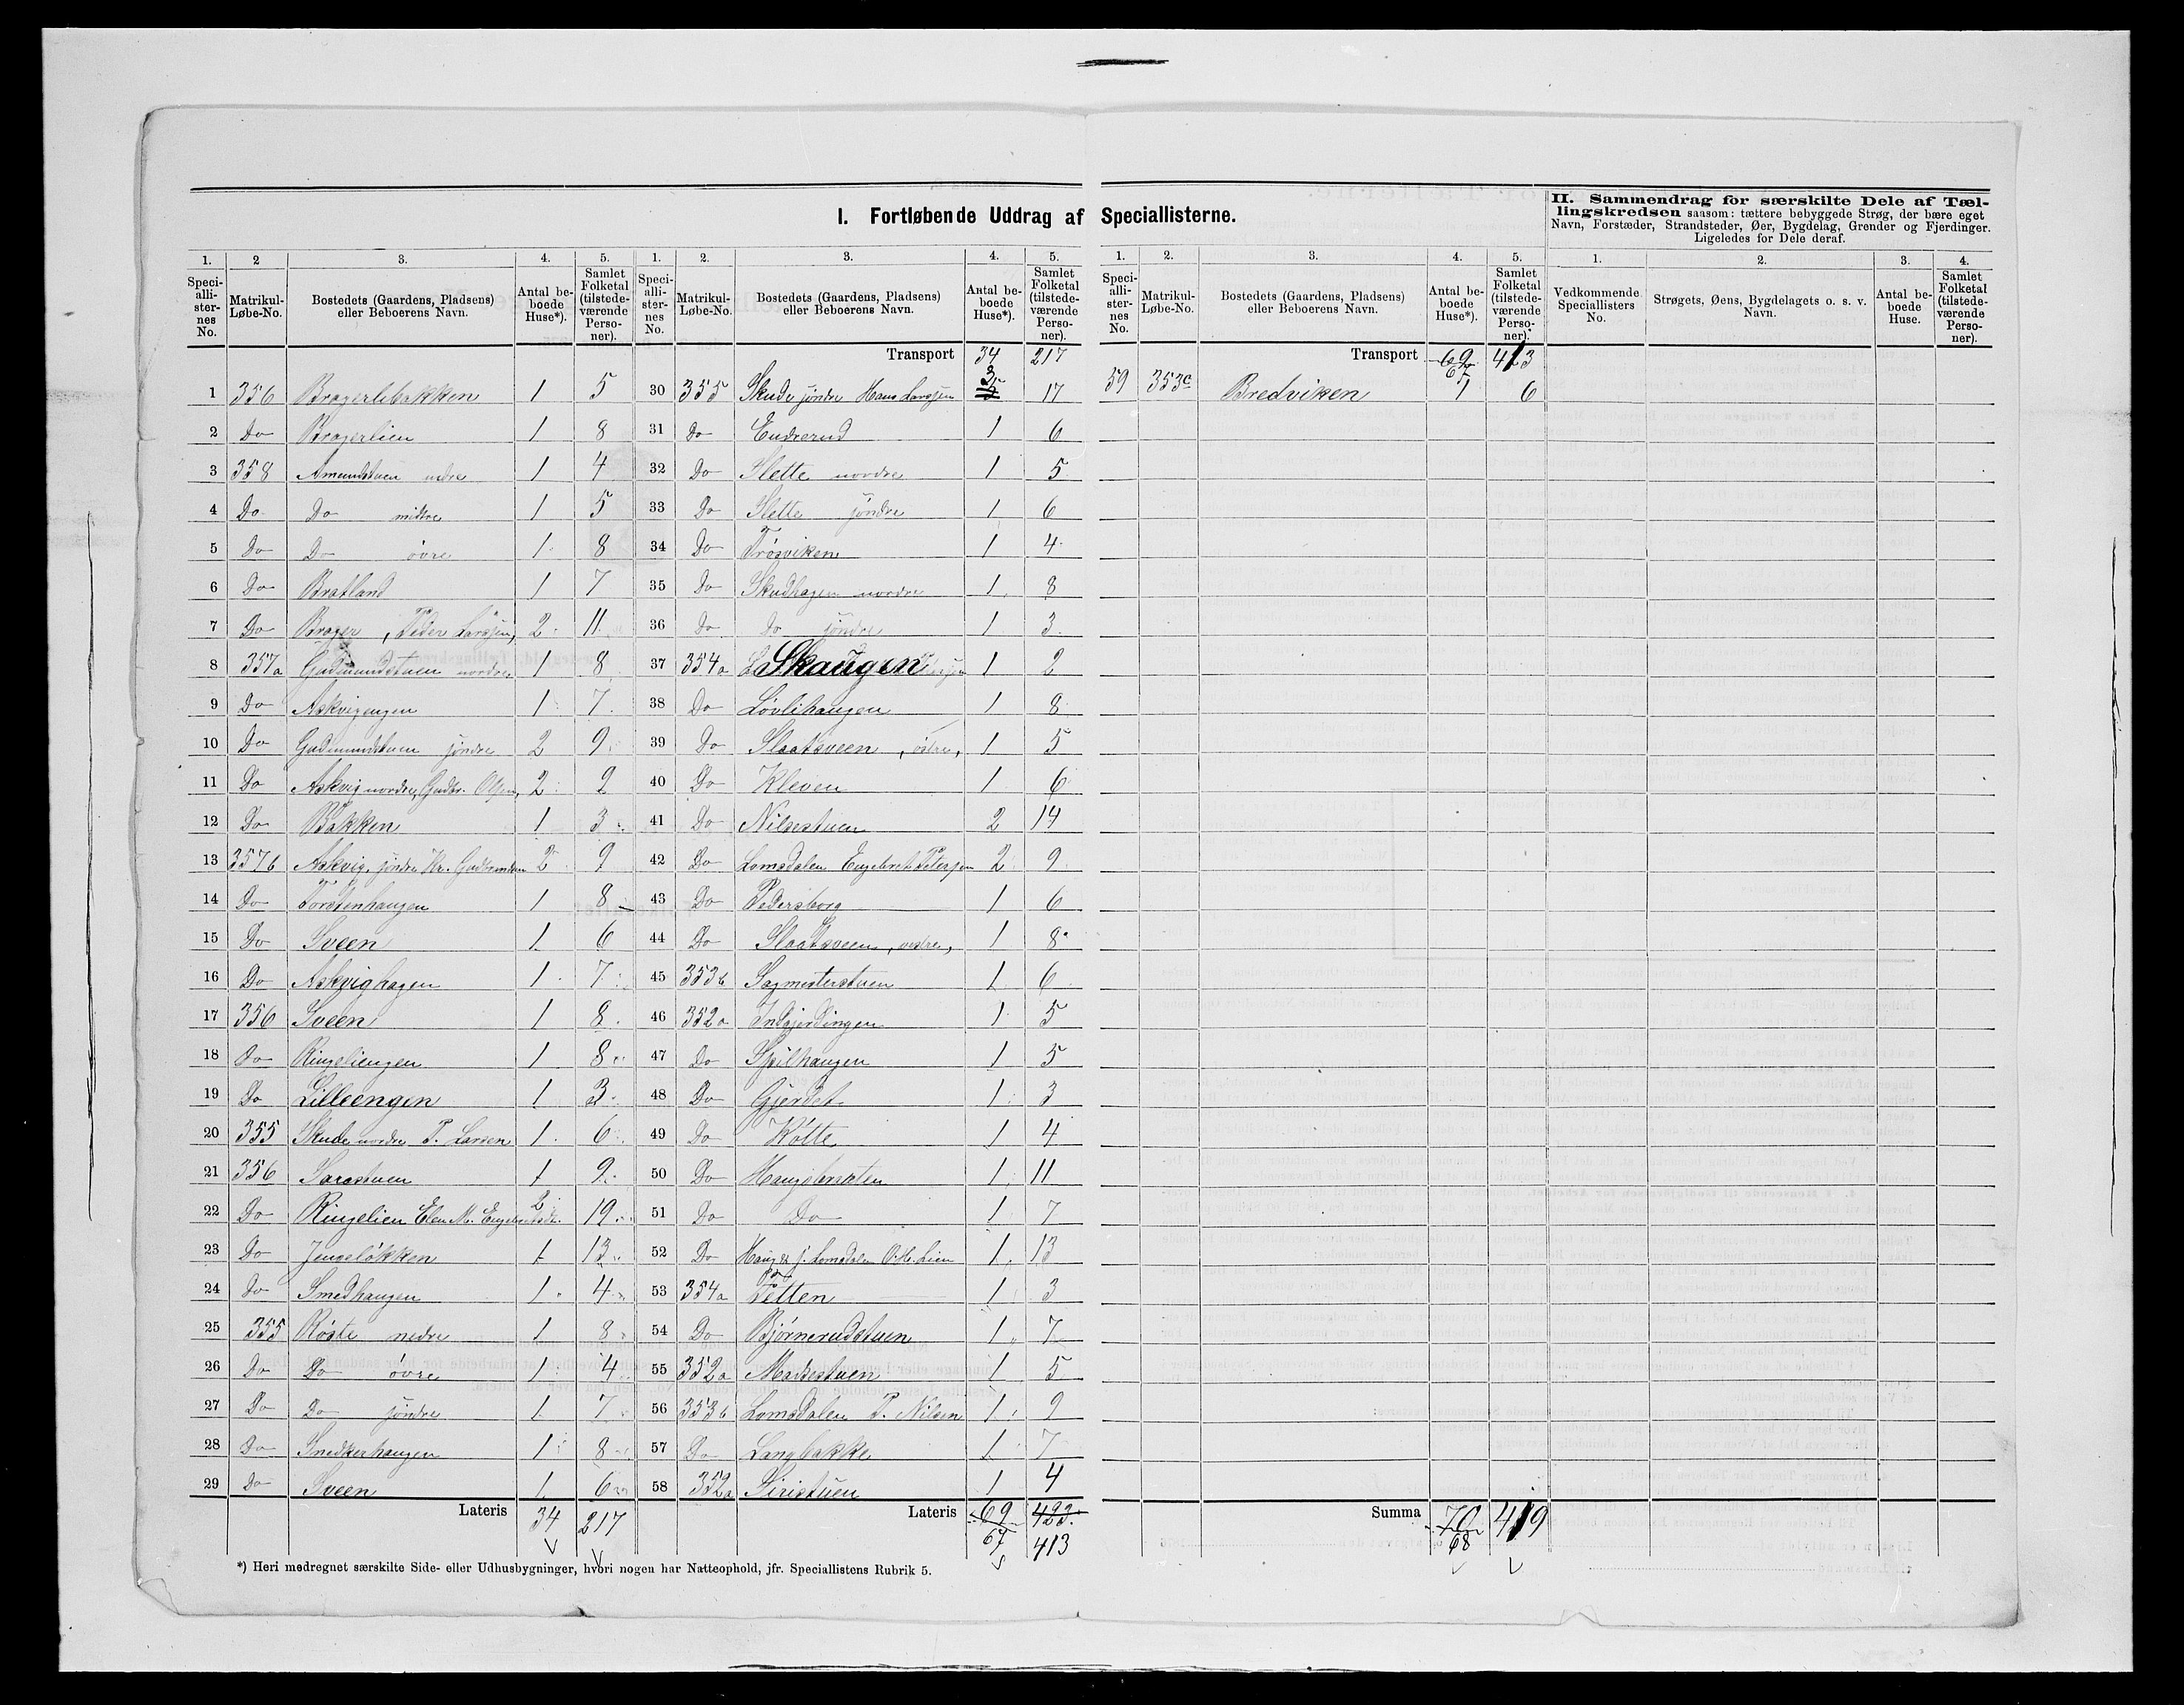 I. Fortløbende Uddrag af Speciallisterne.
II. Sammendrag for særskilte Dele af Tællingskredsen saasom: tættere bebyggede Strøg, der bære eget Navn, Forstæder, Strandsteder, Øer, Bygdelag, Grender og Fjerdinger. Ligeledes for Dele deraf.
1. 2 3. 4. 5. 1. 2. 3. 4. 5. 1. 2. 3. 4. 5. 1. 2. 3. 4.
Speciallisternes No. Matrikul-Løbe-No. Bostedets (Gaardens, Pladsens) eller Beboerens Navn. Antal beboede Huse*). Samlet Folketal (tilstedeværende Personer).
Speciallisternes No. Matrikul-Løbe-No. Bostedets (Gaardens, Pladsens) eller Beboerens Navn. Antal beboede Huse*). Samlet Folketal (tilstedeværende Personer).
Speciallisternes No. Matrikul-Løbe-No. Bostedets (Gaardens, Pladsens) eller Beboerens Navn. Antal beboede Huse*). Samlet Folketal (tilstedeværende Personer).
Vedkommende Speciallisters No. Strøgets, Øens, Bygdelagets o. s. v. Navn. Antal beboede Huse. Samlet Folketal (tilstedeværende Personer).
1 356 Bragerlibakken 1 5
2 Do Bragerlien 1 8
3 358 Amundstuen nedre 1 4
4 Do Do midtre 1 5
5 Do Do övre 1 8
6 Do Bratland 1 7
7 Do Brager, Peder Larsjen, 2 11
8 357a Gudmundstuen nordre 1 8
9 Do Askvigengen 1 7
10 Do Gudmundstuen jöndre 2 9
11 Do Askvig nordre, Gudbr. Olsen, 2 2
12 Do Bakken 1 3
13 357b Askvig, jöndre Kr. Gudbrandsen 2 9
14 Do Torstenhaugen 1 8
15 Do Sveen 1 6
16 Do Askvighagen 1 7
17 356 Sveen 1 8
18 Do Ringeliengen 1 8
19 Do Lilleengen 1 3
20 355 Skude nordre P. Larsen 1 6
21 356 Sarastuen 1 9
22 Do Ringelien Elen M. 2 19
23 Do Jengelökken 1 13
24 Do Smedhaugen 1 4
25 355 Röste nedre 1 8
26 Do Do övre 1 4
27 Do Do jöndre 1 7
28 Do Snedkerhaugen 1 8
29 Do Sveen 1 6
Lateris 34 217
Transport 34 217
30 355 Skude jöndre Hans Larsjen 3 17
31 Do Endrerud 1 6
32 Do Slette nordre 1 5
33 Do Slette jöndre 1 6
34 Do Trösviken 1 4
35 Do Skudhagen nordre 1 8
36 Do Do jöndre 1 3
37 354a Skaugen 1 2
38 Do Lövlihaugen 1 8
39 Do Slaatsveen, östre, 1 5
40 Do Kleven 1 6
41 Do Nilsestuen 2 14
42 Do Lomsdalen Engebret Petersen 2 9
43 Do Pedersborg 1 6
44 Do Slaatsveen, vestre, 1 8
45 353b Sagmesterstuen 1 6
46 352a Indgjerdingen 1 5
47 Do Spilhaugen 1 5
48 Do Gjerdet 1 3
49 Do Kötte 1 4
50 Do Haugsbratten 1 11
51 Do Do 1 7
52 Do Haug & j. Lomsdalen O. H. Lien 1 13
53 354a Petten 1 3
54 Do Björnerudstuen 1 7
55 352a Markestuen 1 5
56 353b Lomsdalen P. Nilsen 1 9
57 Do Langbakke 1 7
58 352a Siristuen 1 4
Lateris 69 423
67 413
Transport 69 413
67
59 353c Bredviken 1 6
Summa 70 419
68
*) Heri medregnet særskilte Side- eller Udhusbygninger, hvori nogen har Natteophold, jfr. Speciallistens Rubrik 5.